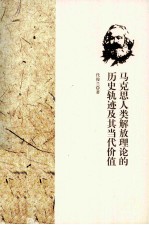 马克思人类解放理论的
历史轨迹及其当代价值